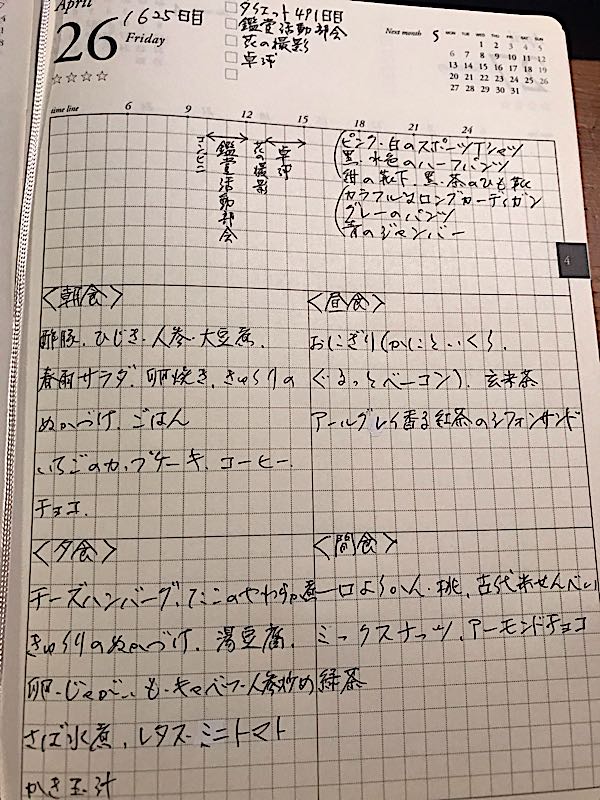 April
26
Friday
1625日目
ダイエット491日目
鑑賞活動部会
花の撮影
卓球
Next month 5
MON TUE WED THU FRI SAT SUN
1 2 3 4 5
6 7 8 9 10 11 12
13 14 15 16 17 18 19
20 21 22 23 24 25 26
27 28 29 30 31
time line 6 9 12 15 18 21 24
コンビニ
鑑賞活動部会
花の撮影
卓球
ピンク・白のスポーツTシャツ
黒・水色のハーフパンツ
紺の靴下、黒・茶のひも靴
カラフルなロングカーディガン
グレーのパンツ
青のジャンパー
4
<朝食>
酢豚、ひじき・人参・大豆煮、
春雨サラダ、卵焼き、きゅうりの
ぬかづけ、ごはん
いちごのカップケーキ、コーヒー、
チョコ、
<昼食>
おにぎり(かにと いくら、
ぐるっとベーコン)、玄米茶
アールグレイ香る紅茶のシフォンサンド
<夕食>
チーズハンバーグ、たこのやわらか煮
きゅうりのぬかづけ、湯豆腐、
卵・じゃがいも・キャベツ・人参炒め
さば水煮、レタス・ミニトマト
かき玉汁
<間食>
一口ようかん、桃、古代米せんべい
ミックスナッツ、アーモンドチョコ
緑茶